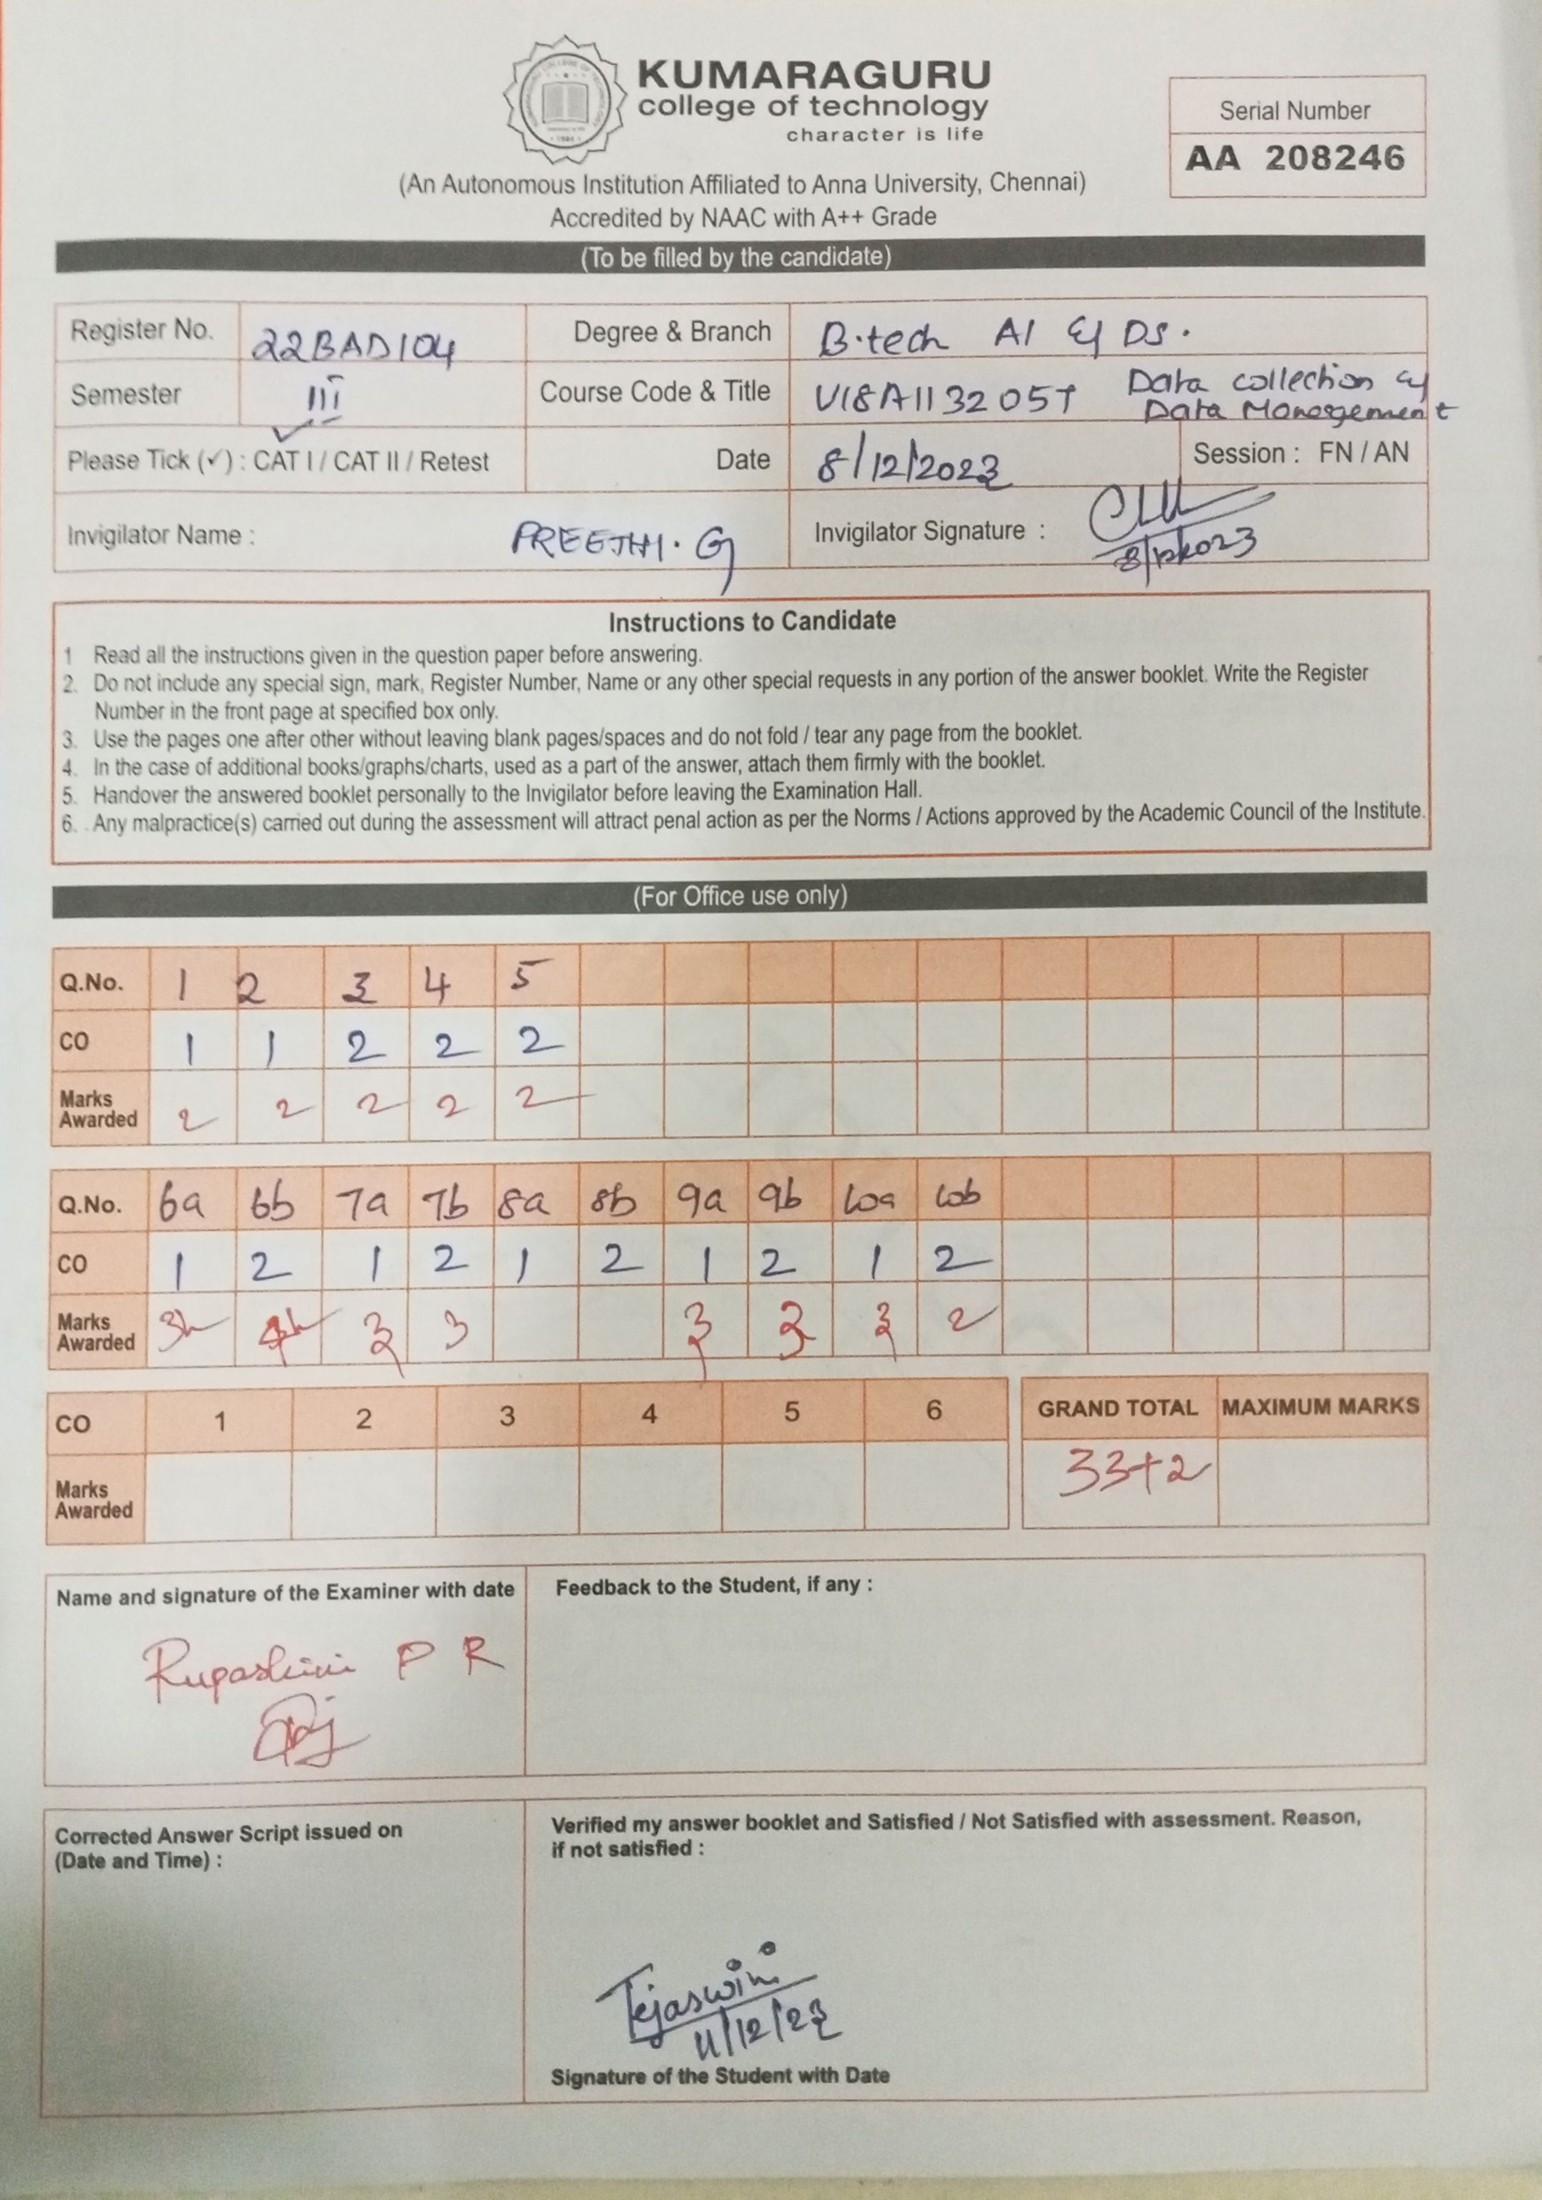 KUMARAGURU
college of technology
character is life
Serial Number
AA 208246
(An Autonomous Institution Affiliated to Anna University, Chennai)
Accredited by NAAC with A++ Grade
(To be filled by the candidate)
Register No. 22BAD104 Degree & Branch B.tech AI & DS.
Semester III Course Code & Title U18AII3205T Data collection &
Data Management
Please Tick (✓) : CAT I / CAT II / Retest Date 8/12/2023 Session : FN / AN
Invigilator Name : PREETHI. G Invigilator Signature :
8/12/2023
Instructions to Candidate
1 Read all the instructions given in the question paper before answering.
2. Do not include any special sign, mark, Register Number, Name or any other special requests in any portion of the answer booklet. Write the Register
Number in the front page at specified box only.
3. Use the pages one after other without leaving blank pages/spaces and do not fold / tear any page from the booklet.
4. In the case of additional books/graphs/charts, used as a part of the answer, attach them firmly with the booklet.
5. Handover the answered booklet personally to the Invigilator before leaving the Examination Hall.
6. Any malpractice(s) carried out during the assessment will attract penal action as per the Norms / Actions approved by the Academic Council of the Institute.
(For Office use only)
Q.No. 1 2 3 4 5
CO 1 1 2 2 2
Marks
Awarded 2 2 2 2 2
Q.No. 6a 6b 7a 7b 8a 8b 9a 9b 10a 10b
CO 1 2 1 2 1 2 1 2 1 2
Marks
Awarded 3 3 3 3 3 2
CO 1 2 3 4 5 6 GRAND TOTAL MAXIMUM MARKS
Marks
Awarded
33+2
Name and signature of the Examiner with date
Feedback to the Student, if any :
Rupashini P R
Corrected Answer Script issued on
(Date and Time) :
Verified my answer booklet and Satisfied / Not Satisfied with assessment. Reason,
if not satisfied :
Tejaswini
11/12/23
Signature of the Student with Date